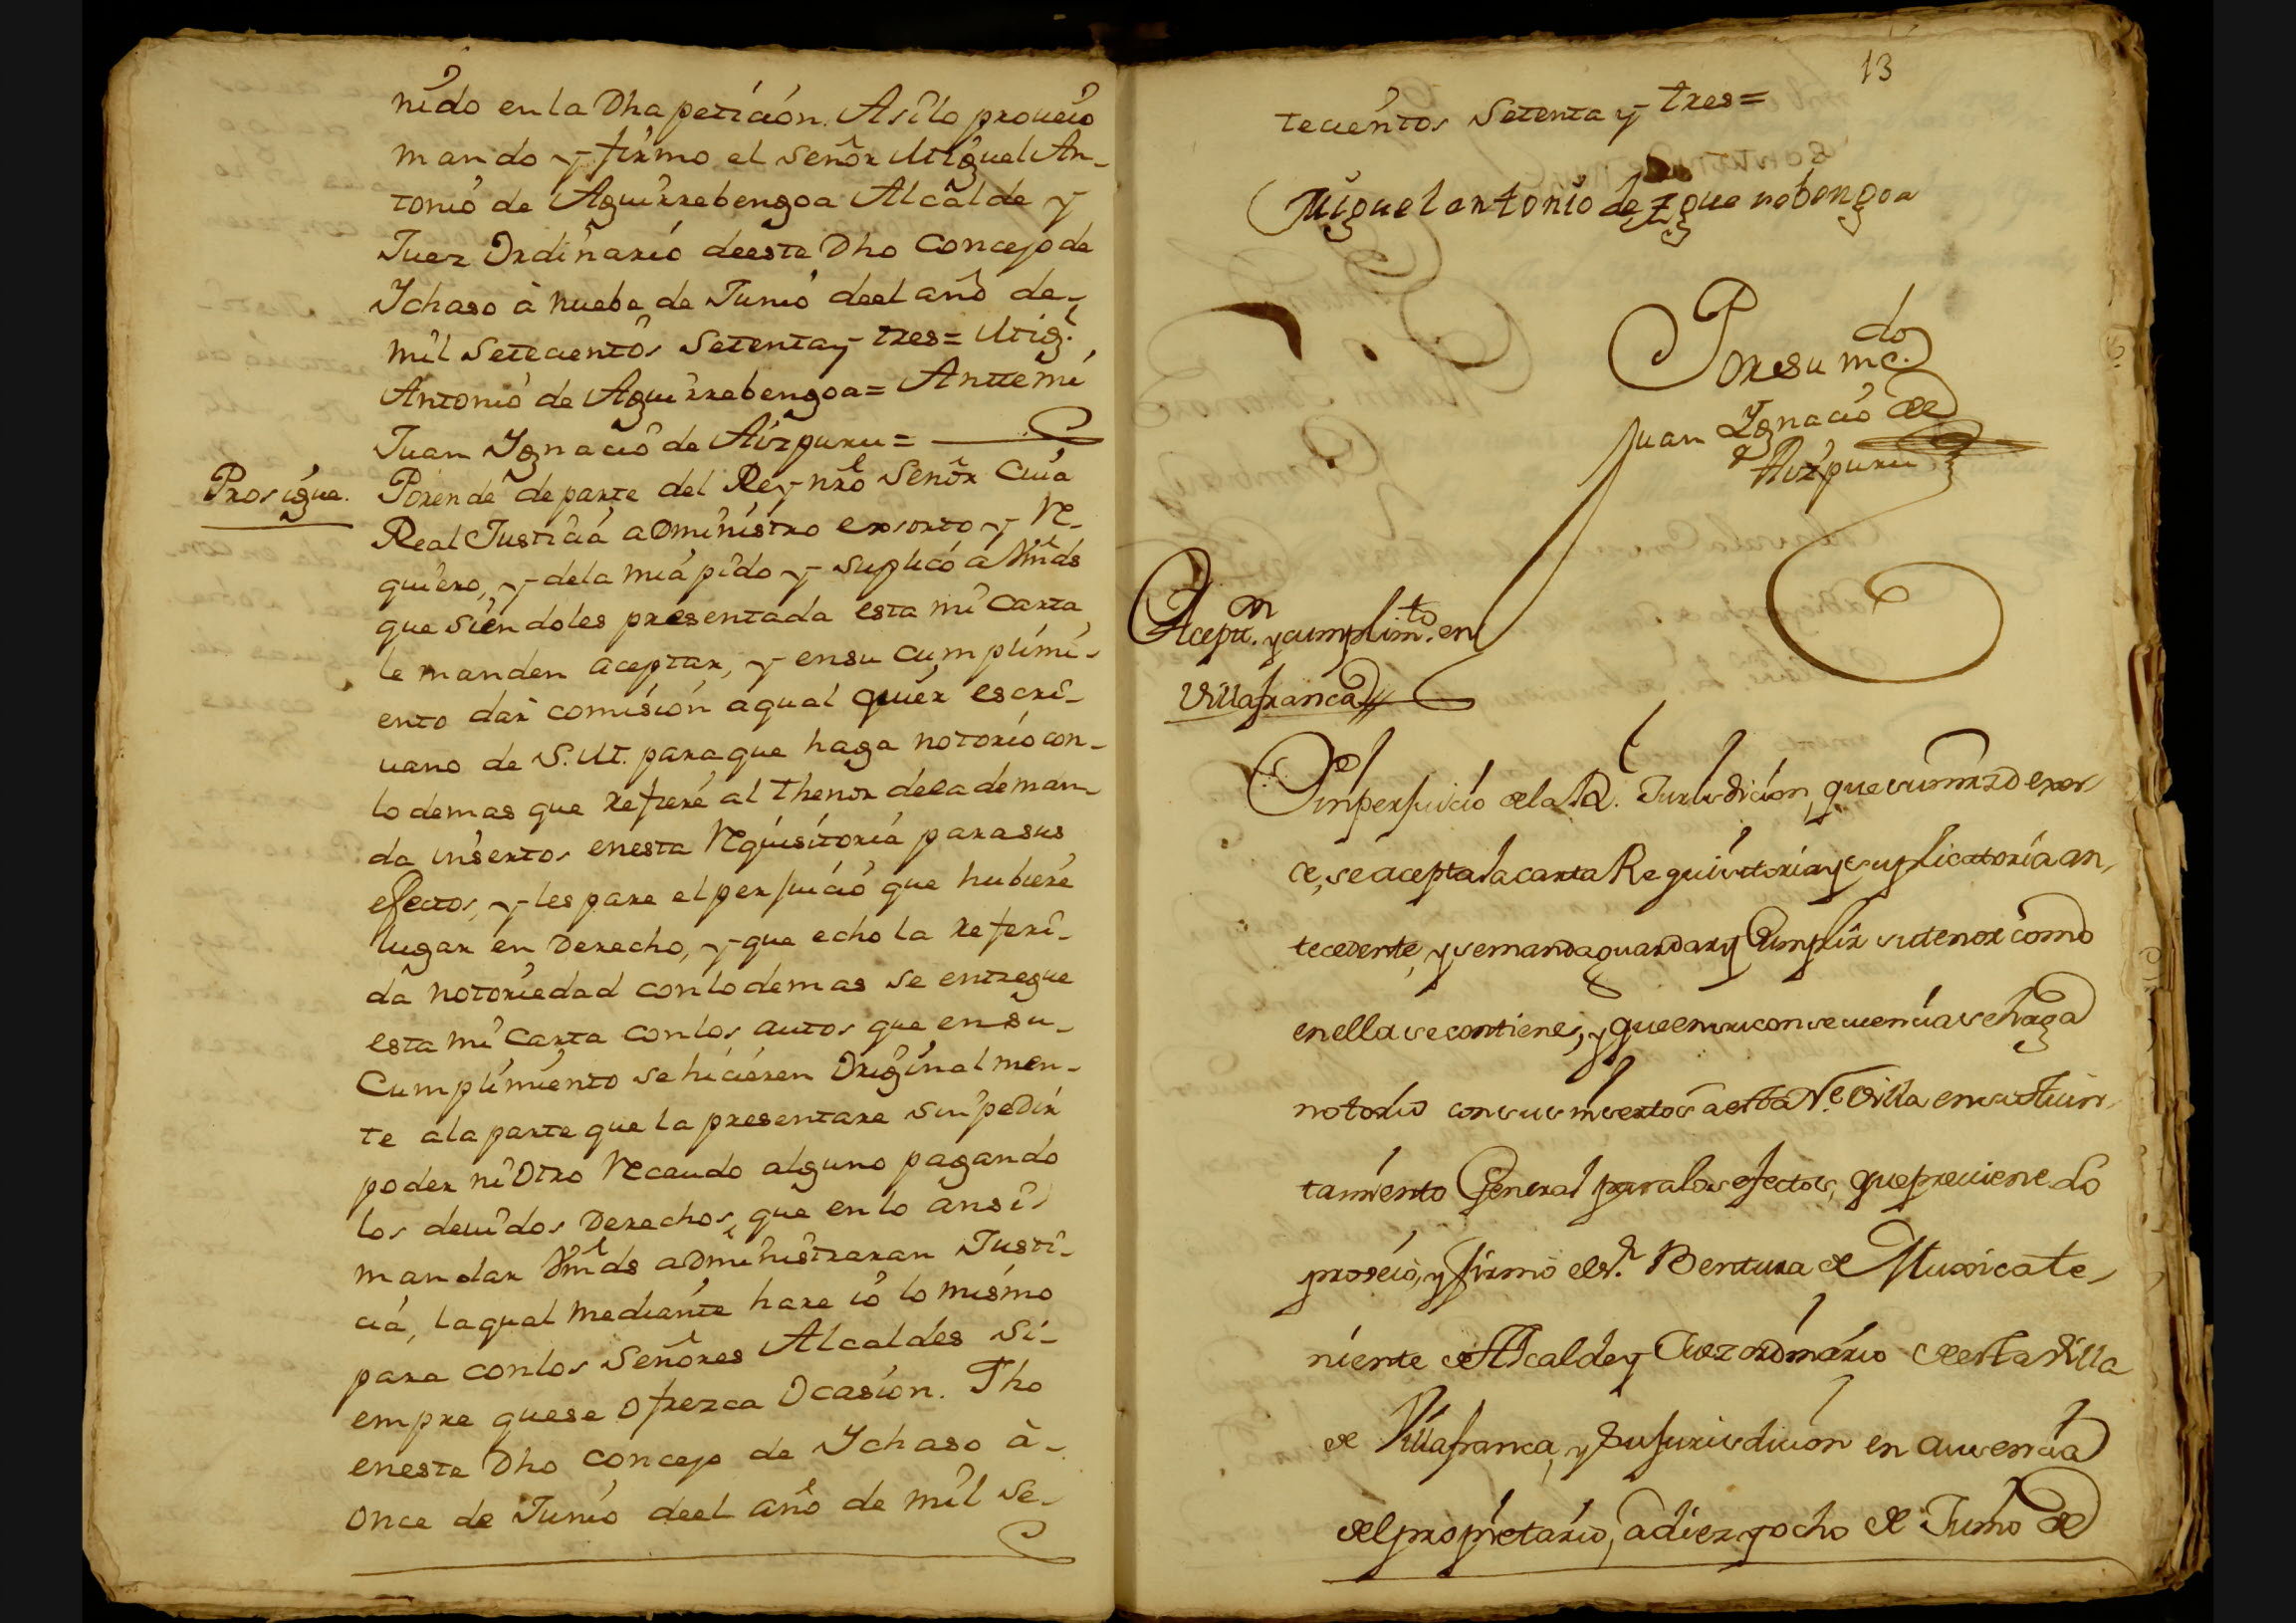 nido en la Dha peticion. Asi lo proueio
mando y firmo el señor Miguel An-
tonio de Aguirrebengoa Alcalde y
Juez Ordinario deeste Dho Concejo de
Ichaso à nuebe de Junio deel año de-
mil Setecientos Setenta y tres= Migl.
Antonio de Aguirrebengoa= Anttemi
Juan Ignacio de Aizpuru=
Prosigue.
Porende de parte del Rey nro Señor Cuia
Real Justicia aDministro exsorto y Re-
quiero, y dela mia pido y suplico a Vmds
que siendoles presentada esta mi Carta
le manden aceptar, y ensu Cumplimi-
ento dar comision aqual quier escri-
uano de S. M. paraque haga notorio con-
lo demas que refiere al thenor dela deman-
da insertos enesta Requisitoria parasus
efectos, y les pare el perjuicio que hubiere
lugar en Derecho, y que echo la referi-
da notoriedad conlodemas se entregue
esta mi Carta conlos autos que ensu-
Cumplimiento sehicieren Original men-
te ala parte que la presentare sin pedir
poder ni Otro Recaudo alguno pagando
los deuidos Derechos, que en lo ansi
mandar Vmds aDministraran Justi-
cia, laqual mediante hare io lo mismo
para conlos Señores Alcaldes si-
empre quese Ofrezca Ocasion. Fho
eneste Dho Concejo de Ichaso à-
once de Junio deel año de mil se-
13
tecientos Setenta y tres=
Miguel antonio de Aguirebengoa
Poresu mdo.
Juan Ignacio de
Aizpuru
Aceptn. y cumplimto. en
Villafranca
Sin perjuicio dela Rl. Jurisdicion, que su mrzd exer-
ce, se acepta la carta Requisitoria y suplicatoria an-
tecedente, y se manda guardar y Cumplir su tenor como
en ella se contiene, y que en su consecuencia se haga
notorio con sus insertos a esta Ne. Villa en su Aiun-
tamiento General para los efectos, que preuiene. Lo
proveio, y firmó el Sr. Bentura de Muxica te-
niente de Alcalde y Juez ordinario de esta Villa
de Villafranca, y su jurisdicion en ausencia
del proprietario, a diez y ocho de Junio de